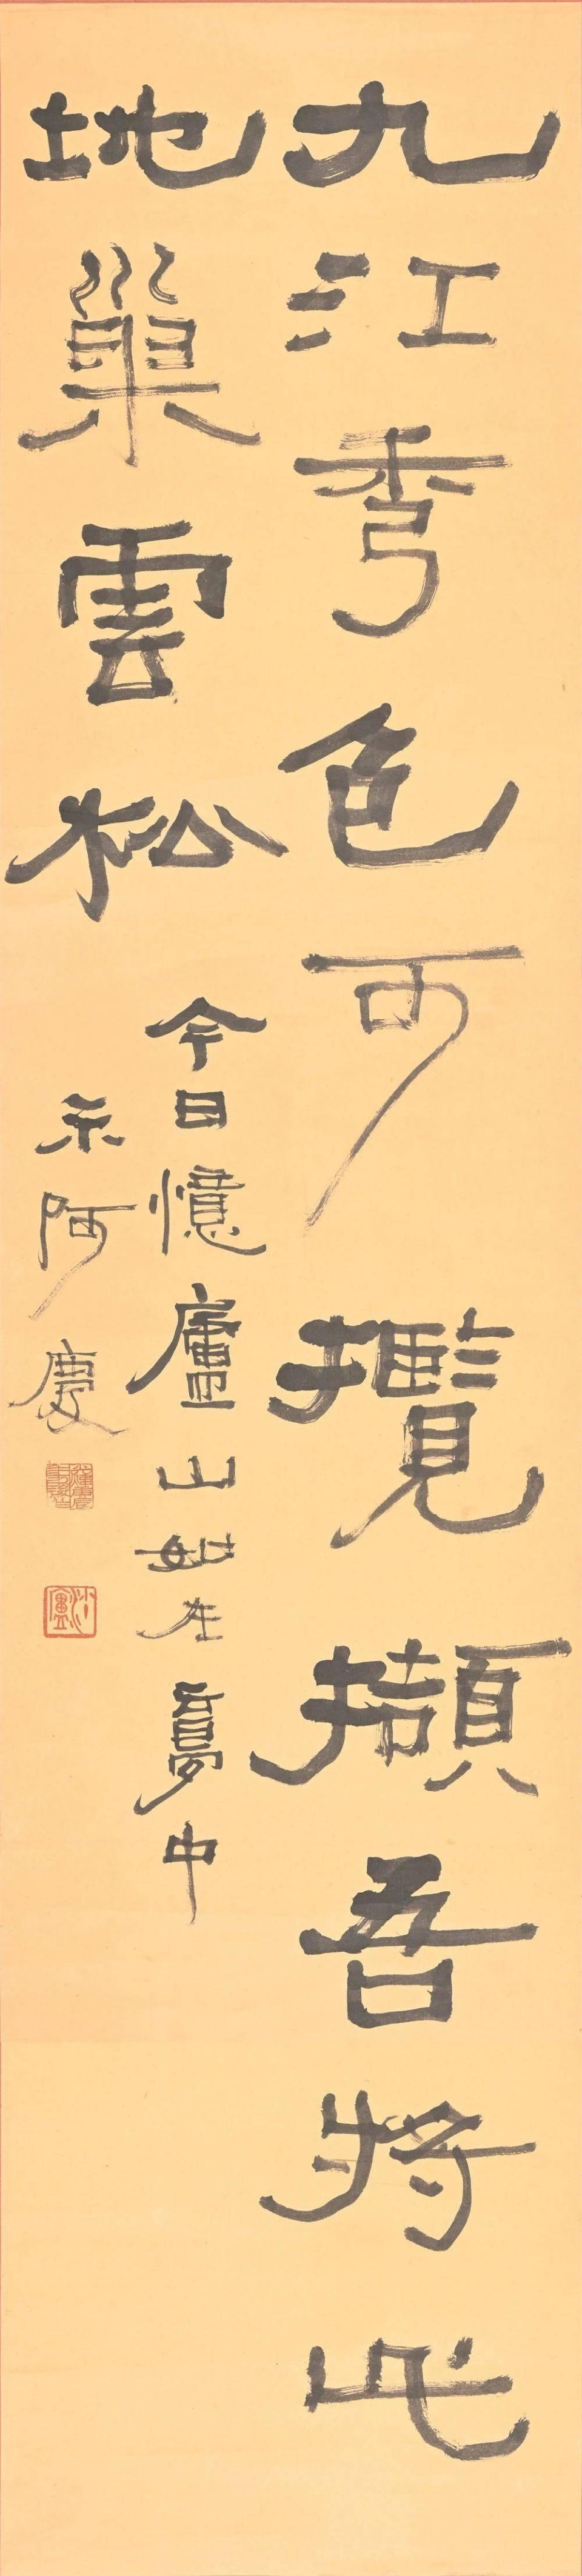 九江秀色可攬擷吾將此
地巢雲松
今日憶廬山如在夢中
示阿慶